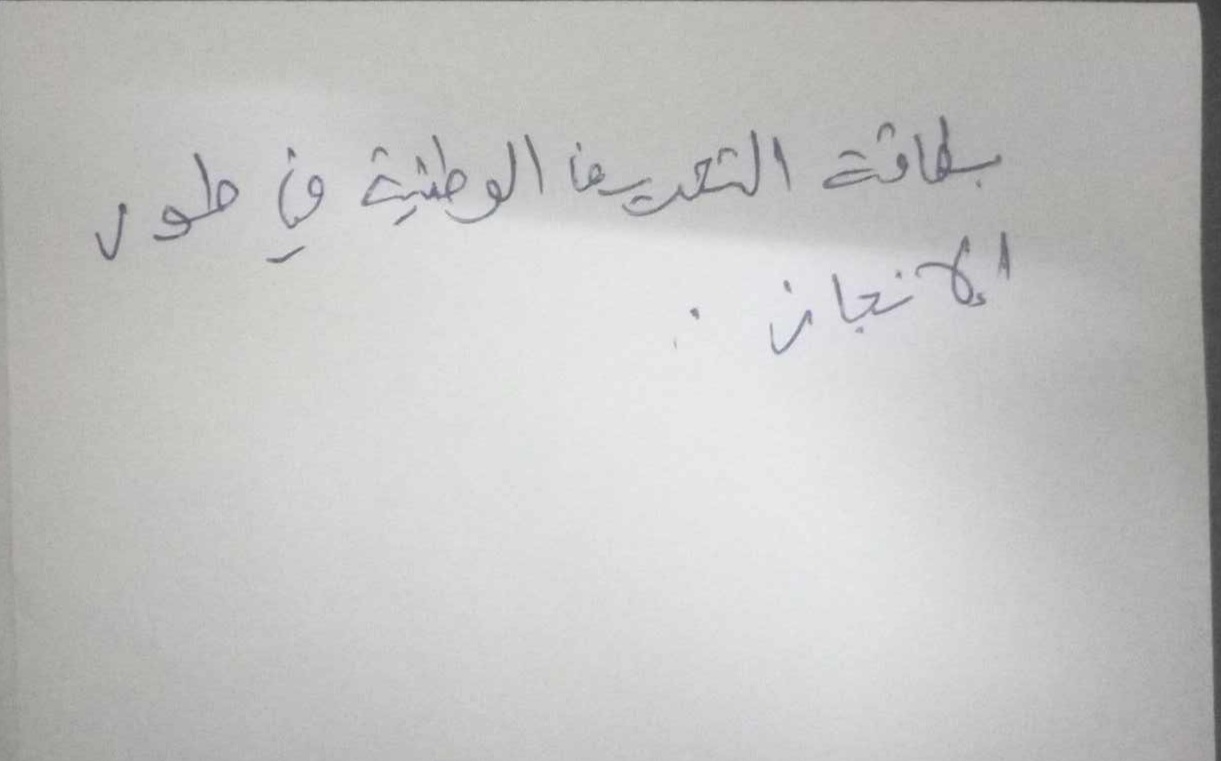 بطاقة التعريف الوطنية في طور
الإنجاز .